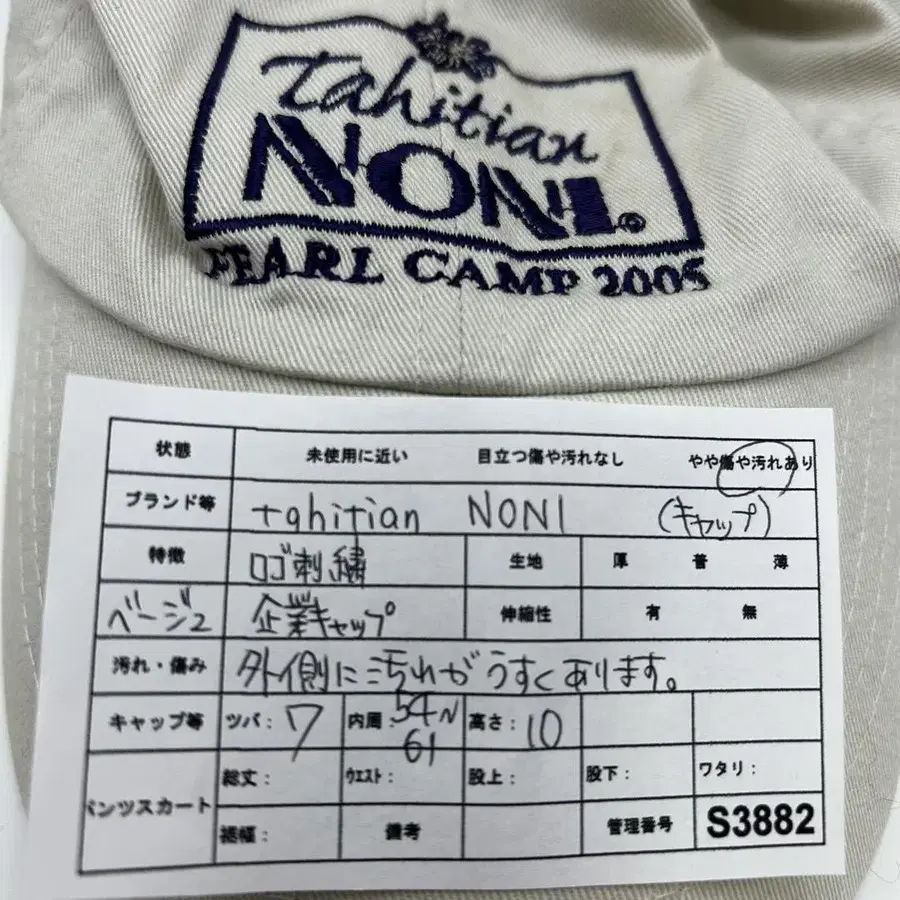 tahitian
NONI®
PEARL CAMP 2005
状態 未使用に近い 目立つ傷や汚れなし やや傷や汚れあり
ブランド等 tahitian NONI (キャップ)
特徴 ロゴ刺繍 生地 厚 普 薄
ベージュ 企業キャップ 伸縮性 有 無
汚れ・傷み 外側に汚れがうすくあります。
キャップ等 ツバ: 7 内周: 54~61 高さ: 10
パンツスカート 総丈: ウエスト: 股上: 股下: ワタリ:
裾幅: 備考 管理番号 S3882